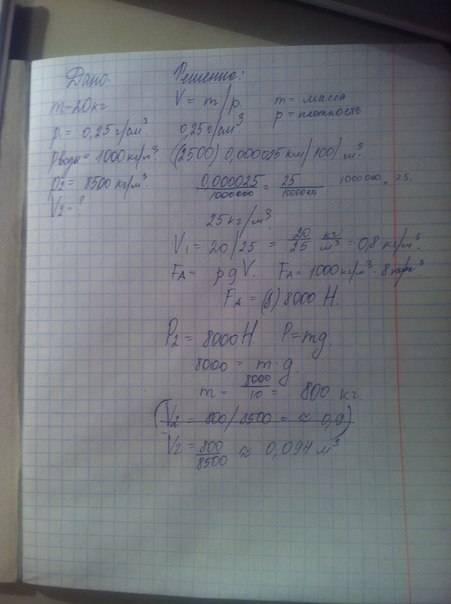 Дано
m = 20 кг
ρ = 0,25 г/см³
ρводы = 1000 кг/м³
ρ2 = 8500 кг/м³
V2 = ?
Решение:
V = m/ρ. m = масса
ρ = плотность
0,25 г/см³
(2500) 0,000025 км/100/м³.
0,000025/1000000 = 25/1000000 1000000 = 25.
25 кг/м³
V1 = 20/25 = 20/25 кг/м³ = 0,8 кг/м³.
FA = ρgV. FA = 1000 кг/м³ · 8
FA = (8) 8000 Н.
P2 = 8000 Н P = mg.
8000 = m · g
m = 8000/10 = 800 кг
V2 = 800/8500 = ≈ 0,9
V2 = 800/8500 ≈ 0,094 м³